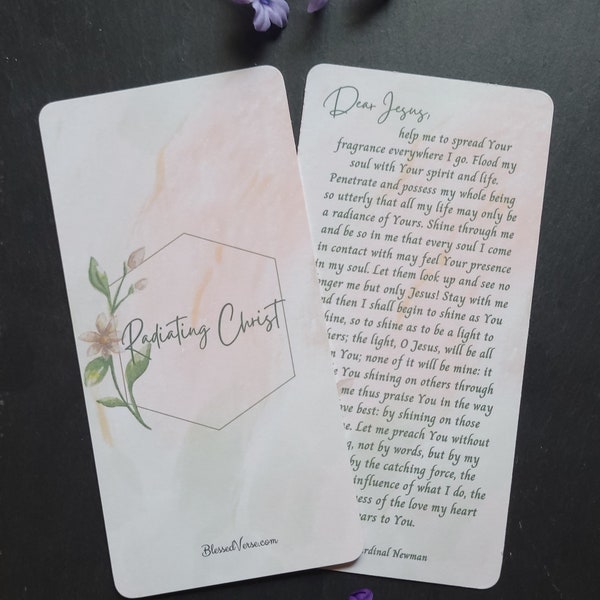 Radiating Christ
BlessedVerse.com
Dear Jesus,
help me to spread Your
fragrance everywhere I go. Flood my
soul with Your spirit and life.
Penetrate and possess my whole being
so utterly that all my life may only be
a radiance of Yours. Shine through me
and be so in me that every soul I come
in contact with may feel Your presence
in my soul. Let them look up and see no
me but only Jesus! Stay with me
then I shall begin to shine as You
so to shine as to be a light to
the light, O Jesus, will be all
You; none of it will be mine: it
You shining on others through
thus praise You in the way
best: by shining on those
Let me preach You without
not by words, but by my
by the catching force, the
influence of what I do, the
of the love my heart
to You.
Newman